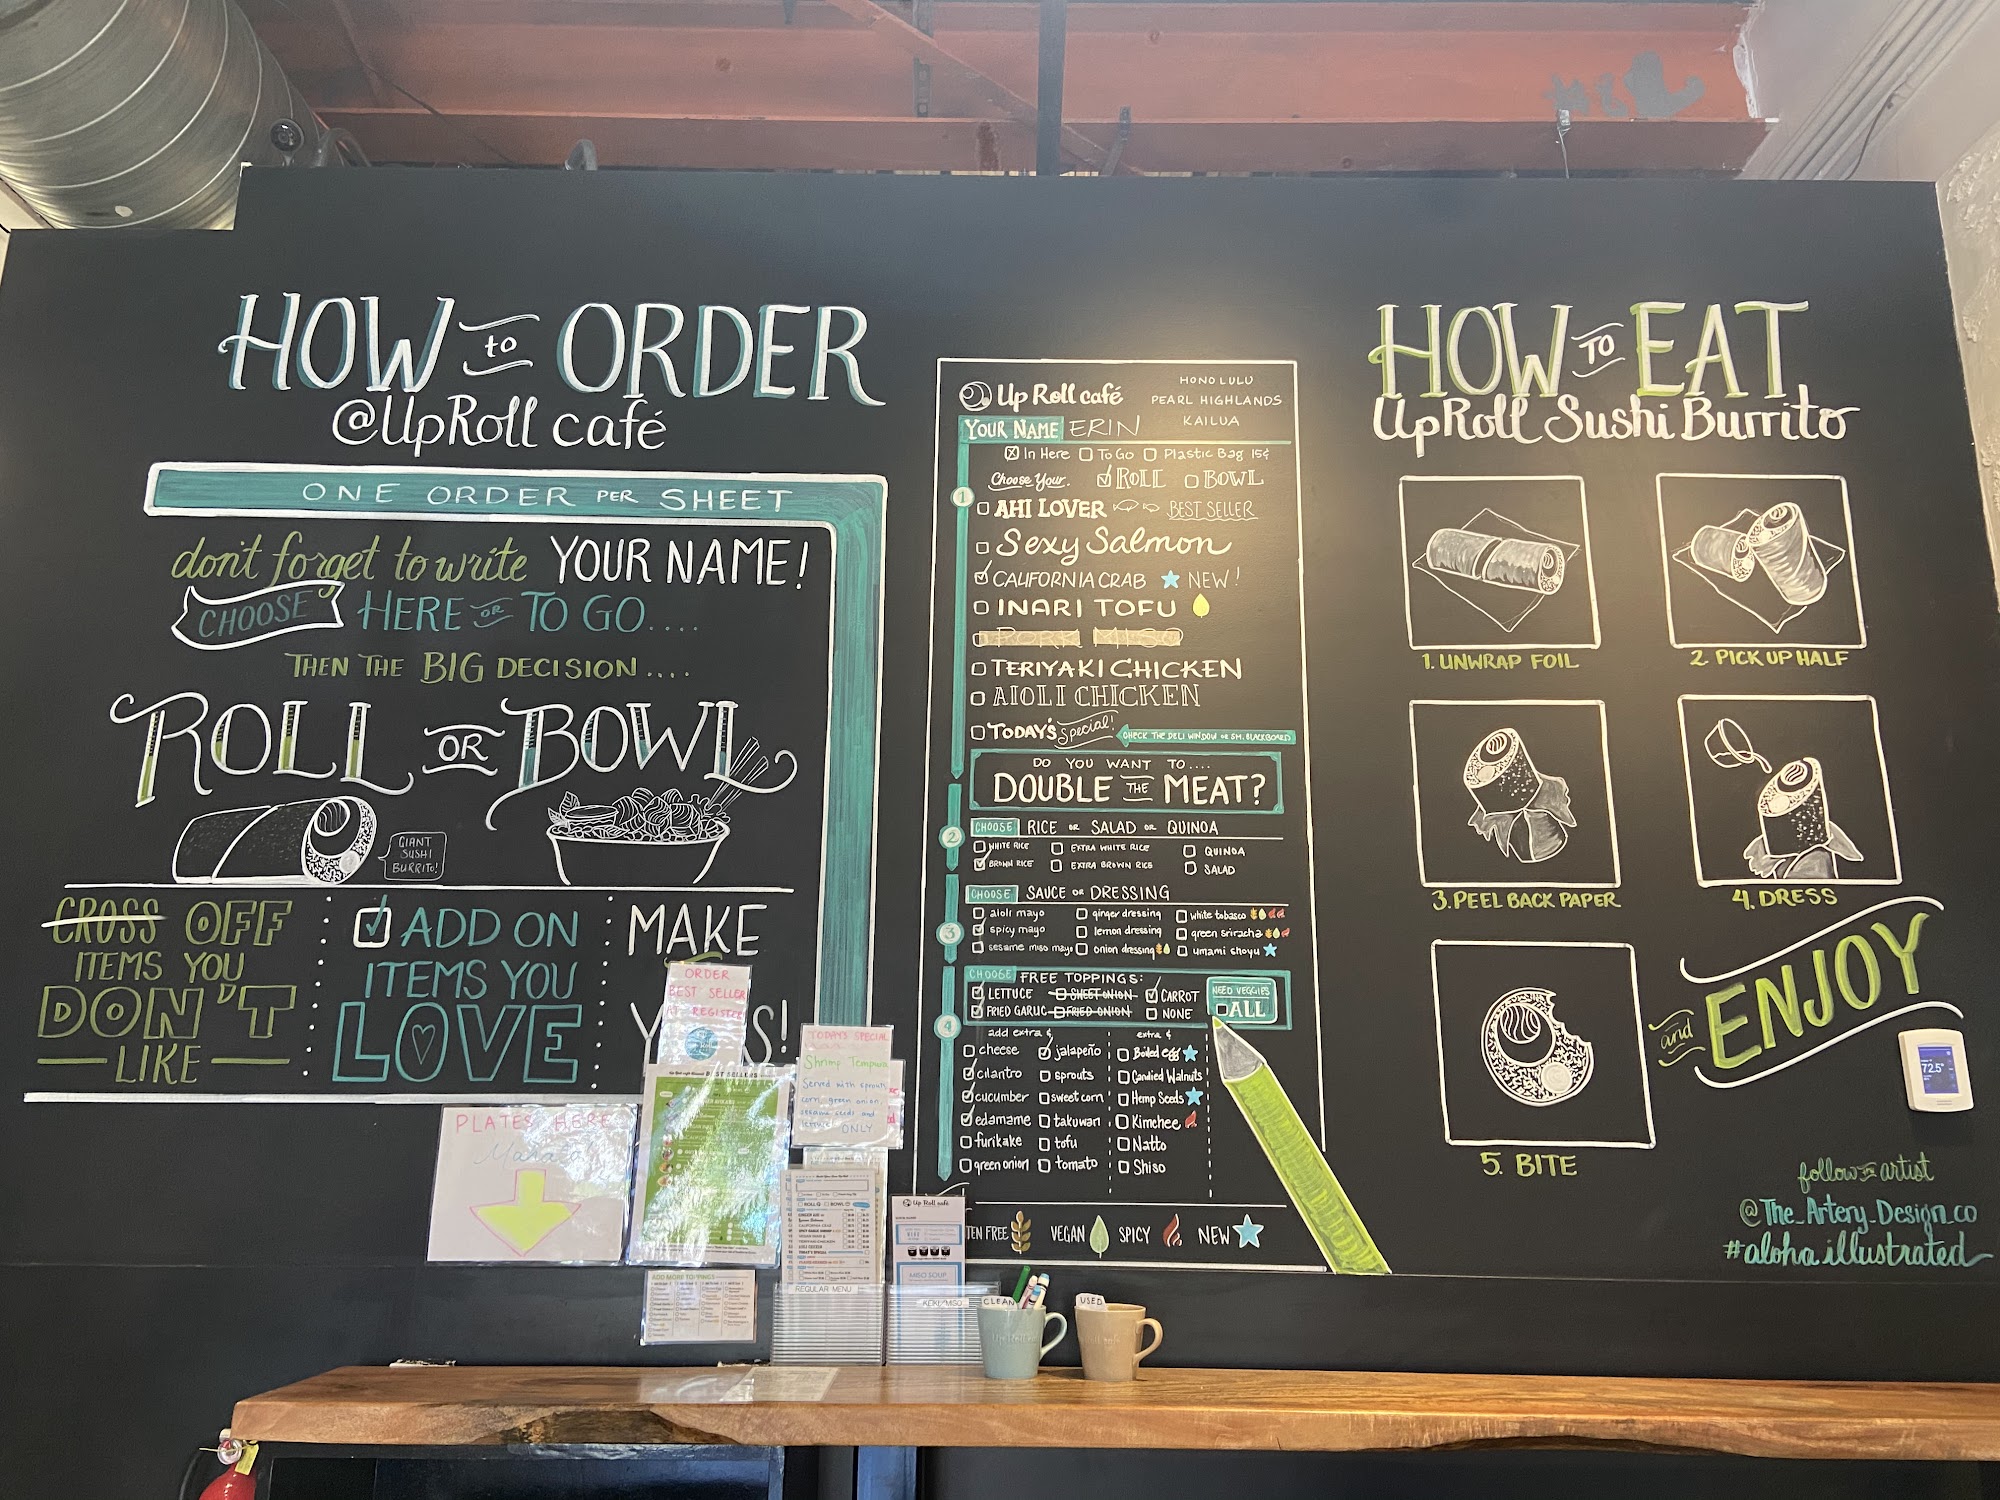 HOW to ORDER
@UpRoll café
ONE ORDER PER SHEET
don't forget to write YOUR NAME!
CHOOSE HERE OR TO GO....
THEN THE BIG DECISION....
ROLL OR BOWL
GIANT
SUSHI
BURRITO!
CROSS OFF
ITEMS YOU
DON'T
LIKE
ADD ON
ITEMS YOU
LOVE
MAKE
ORDER
BEST SELLER
AT REGISTER
TODAY'S SPECIAL
Shrimp Tempura
Served with sprouts
corn, green onion
sesame seeds and
ONLY
PLATES HERE
BEST SELLERS
ADD MORE TOPPINGS
REGULAR MENU
Up Roll café
MISO SOUP
KEIKI/MISO
CLEAN
USED
Up Roll café
HONOLULU
PEARL HIGHLANDS
KAILUA
YOUR NAME ERIN
In Here To Go Plastic Bag 15¢
Choose Your. ROLL BOWL
1
AHI LOVER BEST SELLER
Sexy Salmon
CALIFORNIA CRAB NEW!
INARI TOFU
PORK MISO
TERIYAKI CHICKEN
AIOLI CHICKEN
TODAY'S Special! CHECK THE DELI WINDOW or SM. BLACKBOARD
DO YOU WANT TO....
DOUBLE THE MEAT?
2
CHOOSE RICE OR SALAD OR QUINOA
WHITE RICE EXTRA WHITE RICE QUINOA
BROWN RICE EXTRA BROWN RICE SALAD
3
CHOOSE SAUCE OR DRESSING
aioli mayo ginger dressing white tobasco
spicy mayo lemon dressing green sriracha
sesame miso mayo onion dressing umami shoyu
4
CHOOSE FREE TOPPINGS:
LETTUCE SWEET ONION CARROT
FRIED GARLIC FRIED ONION NONE
NEED VEGGIES
ALL
add extra ¢ extra ¢
cheese jalapeño Boiled egg
cilantro sprouts Candied Walnuts
cucumber sweet corn Hemp Seeds
edamame takuwan Kimchee
furikake tofu Natto
green onion tomato Shiso
TEN FREE VEGAN SPICY NEW
HOW TO EAT
UpRoll Sushi Burrito
1. UNWRAP FOIL
2. PICK UP HALF
3. PEEL BACK PAPER
4. DRESS
5. BITE
and ENJOY
72.5°
follow the artist
@The_Artery_Design_co
#aloha.illustrated